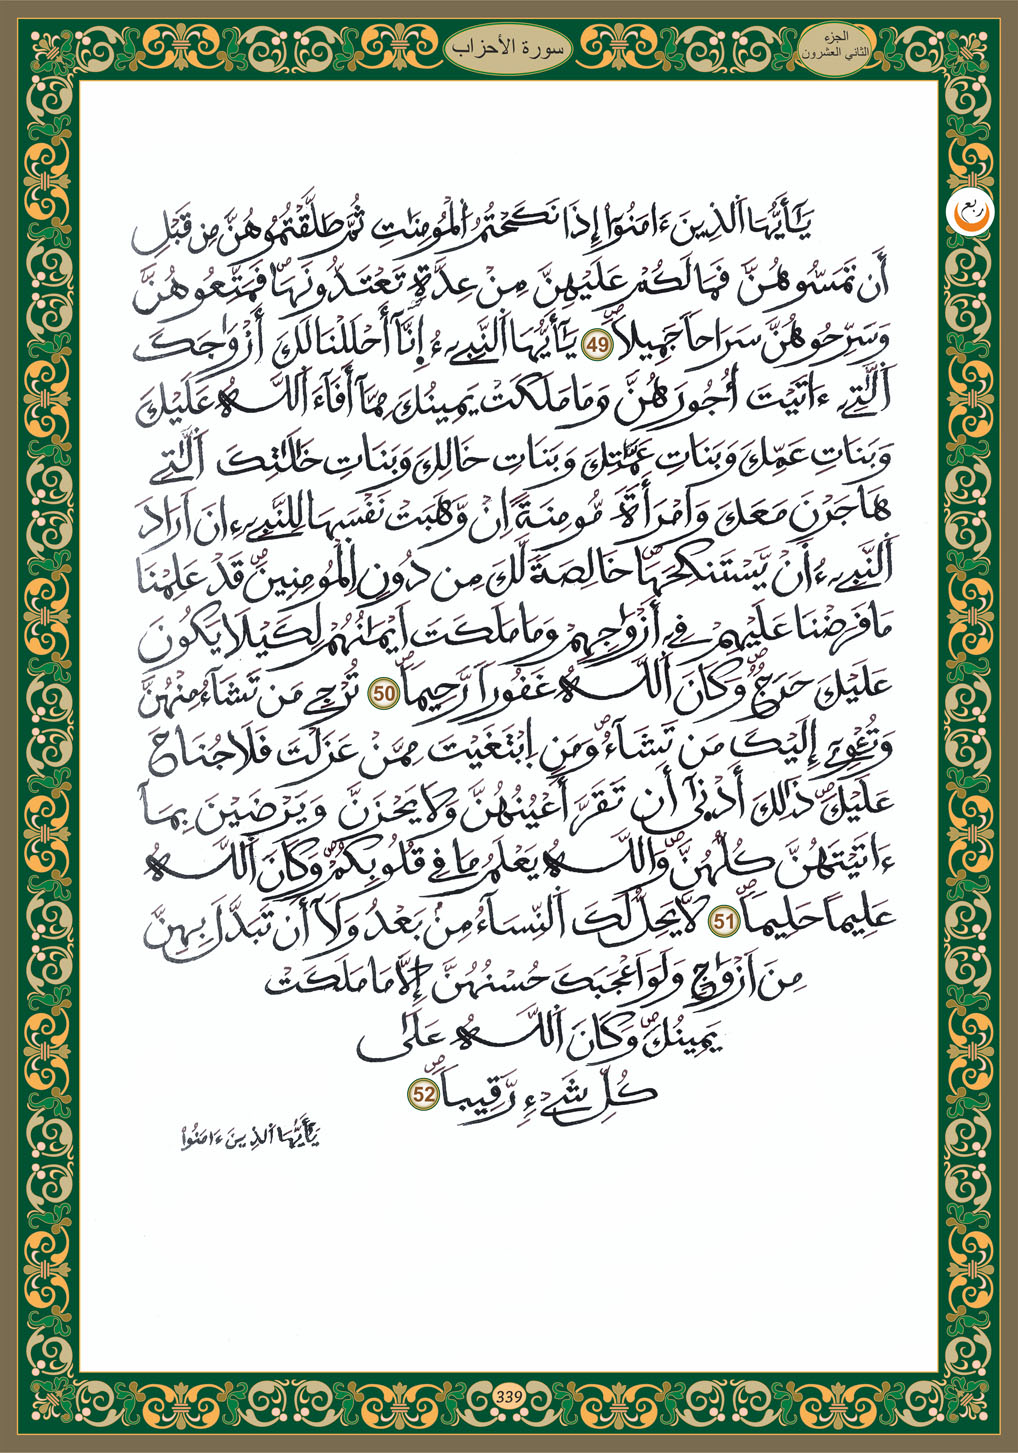 الجزء
الثاني العشرون
سورة الأحزاب
ربع
يَٰٓأَيُّهَا اَلذِينَ ءَامَنُوٓاْ إِذَا نَكَحْتُمُ اُلْمُومِنَٰتِ ثُمَّ طَلَّقْتُمُوهُنَّ مِن قَبْلِ
أَن تَمَسُّوهُنَّ فَمَا لَكُمْ عَلَيْهِنَّ مِنْ عِدَّةٖ تَعْتَدُّونَهَاۖ فَمَتِّعُوهُنَّ
وَسَرِّحُوهُنَّ سَرَاحاٗ جَمِيلاٗۖ 49 يَٰٓأَيُّهَا اَلنَّبِےٓءُ اِنَّآ أَحْلَلْنَا لَكَ أَزْوَٰجَكَ
اَلَٰتِےٓ ءَاتَيْتَ أُجُورَهُنَّ وَمَا مَلَكَتْ يَمِينُكَ مِمَّآ أَفَآءَ اَللَّهُ عَلَيْكَ
وَبَنَاتِ عَمِّكَ وَبَنَاتِ عَمَّٰتِكَ وَبَنَاتِ خَالِكَ وَبَنَاتِ خَٰلَٰتِكَ اَلَٰتِے
هَاجَرْنَ مَعَكَ وَامْرَأَةٗ مُّومِنَةً اِنْ وَّهَبَتْ نَفْسَهَا لِلنَّبِےٓءِ انَ اَرَادَ
اَلنَّبِےٓءُ اَنْ يَّسْتَنكِحَهَاۖ خَالِصَةٗ لَّكَ مِن دُونِ اِلْمُومِنِينَۖ قَدْ عَلِمْنَا
مَا فَرَضْنَا عَلَيْهِمْ فِےٓ أَزْوَٰجِهِمْ وَمَا مَلَكَتَ اَيْمَٰنُهُمْ لِكَيْلَا يَكُونَ
عَلَيْكَ حَرَجٞۖ وَكَانَ اَللَّهُ غَفُوراٗ رَّحِيماٗۖ 50 تُرْجِے مَن تَشَآءُ مِنْهُنَّ
وَتُـْٔوِےٓ إِلَيْكَ مَن تَشَآءُۖ وَمَنِ اِبْتَغَيْتَ مِمَّنْ عَزَلْتَ فَلَا جُنَاحَ
عَلَيْكَۖ ذَٰلِكَ أَدْنَىٰٓ أَن تَقَرَّ أَعْيُنُهُنَّ وَلَا يَحْزَنَّ وَيَرْضَيْنَ بِمَآ
ءَاتَيْتَهُنَّ كُلُّهُنَّۖ وَاللَّهُ يَعْلَمُ مَا فِے قُلُوبِكُمْۖ وَكَانَ اَللَّهُ
عَلِيماً حَلِيماٗۖ 51 لَّا يَحِلُّ لَكَ اَلنِّسَآءُ مِنۢ بَعْدُ وَلَآ أَن تَبَدَّلَ بِهِنَّ
مِنَ اَزْوَٰجٖ وَلَوَ اَعْجَبَكَ حُسْنُهُنَّ إِلَّا مَا مَلَكَتْ
يَمِينُكَۖ وَكَانَ اَللَّهُ عَلَىٰ
كُلِّ شَےْءٖ رَّقِيباٗۖ 52
يَٰٓأَيُّهَا اَلذِينَ ءَامَنُواْ
339